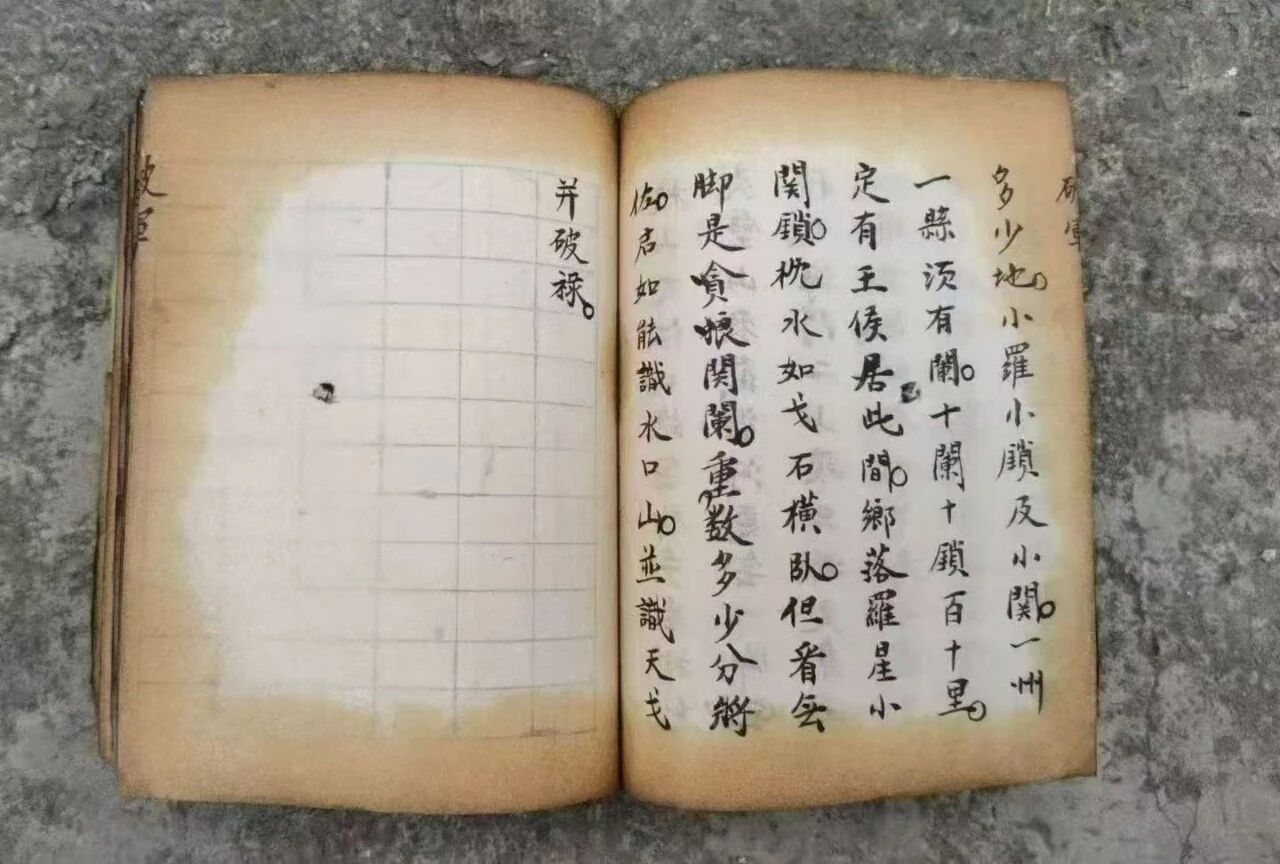 破軍
多少地。小羅小鎖及小関。一州
一縣須有闌。十闌十鎖百十里。
定有王侯居此間。鄉落羅星小
関鎖。枕水如戈石橫臥。但看無
脚是貪狼関闌。重数多少分將
佐。君如能識水口山。並識天戈
并破祿。
破軍